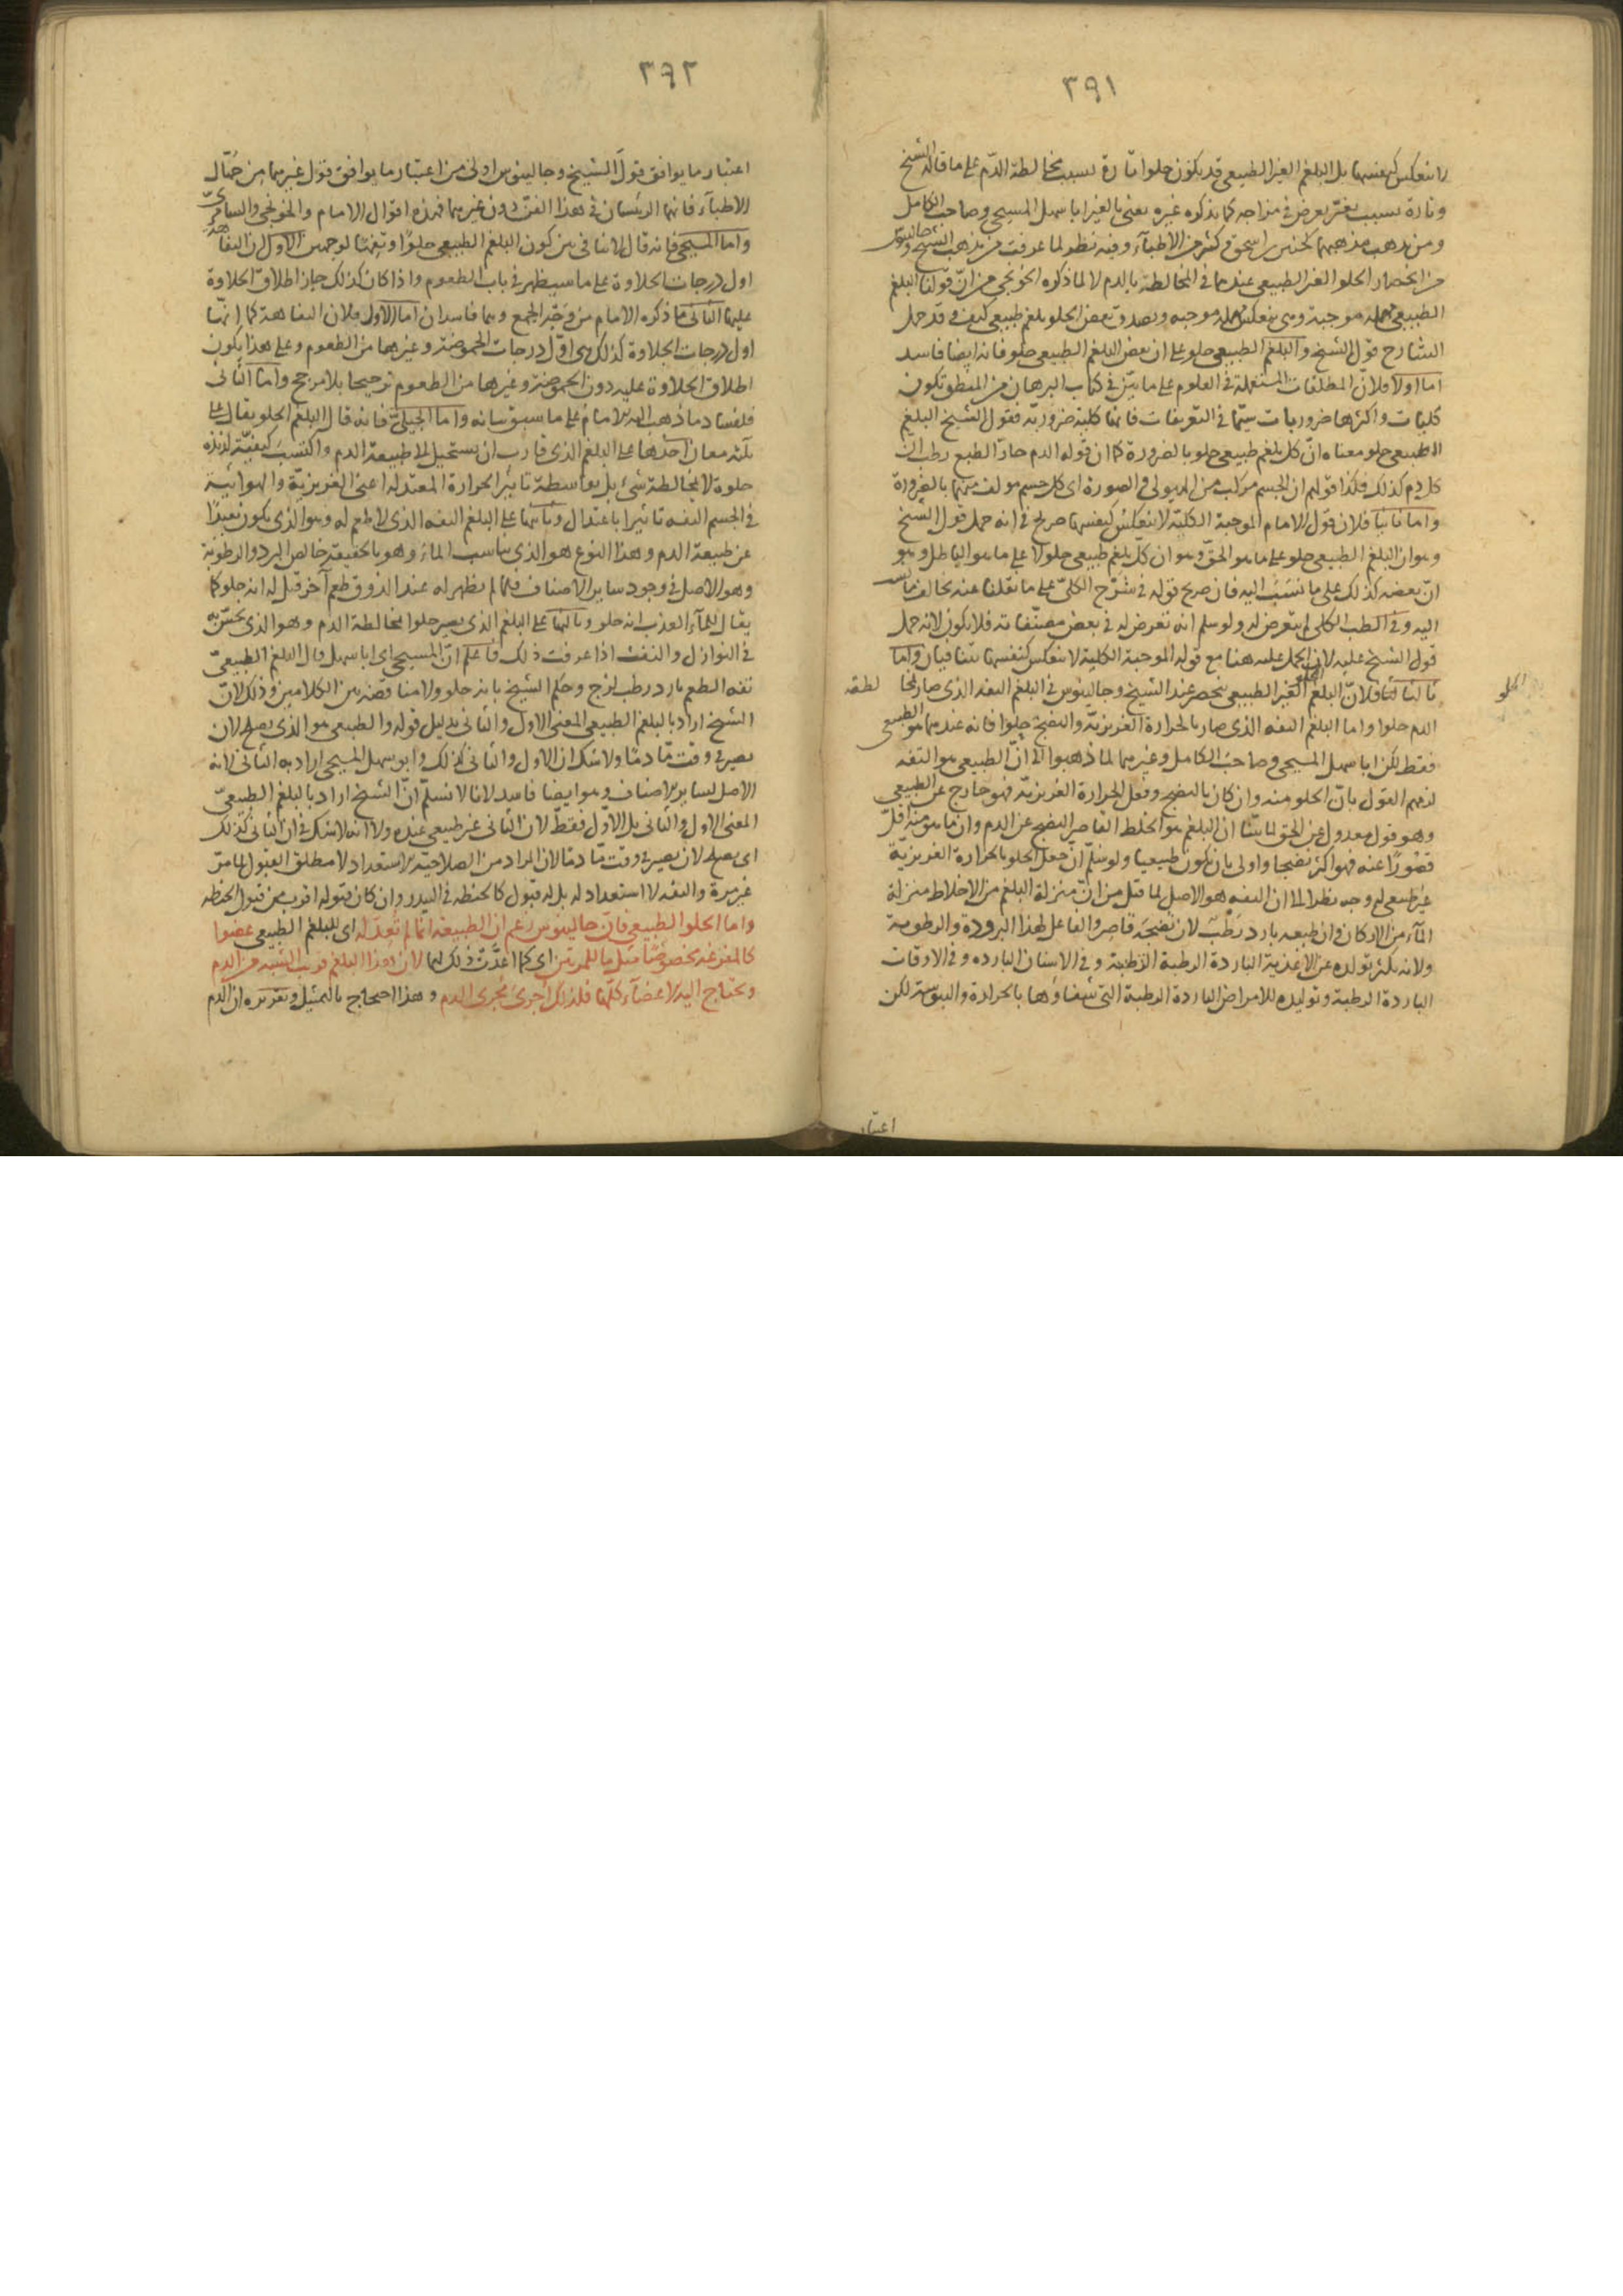 ٣٩١
لا تنعكس كنفسها بل البلغم الغير الطبيعى قد يكون حلوا تارة بسبب مخالطة الدم على ما قاله الشيخ
وتارة بسبب تغير يعرض فى مزاجه كما يذكره غيره يعنى بالغير ابا سهل المسيحى وصاحب الكامل
ومن يذهب مذهبهما كحنين بن اسحق وكثير من الاطباء وفيه نظر لما عرفت من مذهب الشيخ وجالينوس
من انحصار الحلو الغير الطبيعى عندهما فى المخالطة بالدم لا لما ذكره الخونجى من ان قولنا البلغم
الطبيعى حلو مهملة موجبة وهى تنعكس مهملة موجبة ويصدق بعض الحلو بلغم طبيعى كيف وقد حمل
الشارح قول الشيخ والبلغم الطبيعى حلو على ان بعض البلغم الطبيعى حلو فانه ايضا فاسد
اما اولا فلان المطلقات المستعملة فى العلوم على ما بين فى كتاب البرهان من المنطق تكون
كليات واكثرها ضروريات سيما فى التعريفات فانها كلية ضرورية فقول الشيخ البلغم
الطبيعى حلو معناه ان كل بلغم طبيعى حلو بالضرورة كما ان قوله الدم حار الطبع رطب ان
كل دم كذلك فكذا قولهم ان الجسم مركب من الهيولى والصورة اى كل جسم مولف منهما بالضرورة
واما ثانيا فلان قول الامام الموجبة الكلية لا تنعكس كنفسها صريح فى انه حمل قول الشيخ
وهو ان البلغم الطبيعى حلو على ما هو الحق وهو ان كل بلغم طبيعى حلو لا على ما هو الباطل وهو
ان بعضه كذلك على ما نسب اليه فان صريح قوله فى شرح الكلى على ما نقلنا عنه يخالف ما نسب
اليه وفى الطب الكلى لم يتعرض له ولو سلم انه تعرض له فى بعض مصنفاته فلا يكون لانه حمل
قول الشيخ عليه لان الحمل عليه هنا مع قوله الموجبة الكلية لا تنعكس كنفسها متنافيان واما
ثالثا فلان البلغم الحلو الغير الطبيعى ينحصر عند الشيخ وجالينوس فى البلغم التفه الذى صار لمخالطة
الحلو
الدم حلوا واما البلغم التفه الذى صار بالحرارة الغريزية والنضج حلوا فانه عندهما هو الطبيعى
فقط لكن ابا سهل المسيحى وصاحب الكامل وغيرهما لما ذهبوا الى ان الطبيعى هو التفه
لزمهم القول بان الحلو منه وان كان بالنضج وفعل الحرارة الغريزية فهو خارج عن الطبيعى
وهو قول معدول عن الحق لما بينا ان البلغم هو الخلط القاصر النضج عن الدم وان ما هو منه اقل
قصورا عنه فهو اكثر نضجا واولى بان يكون طبيعيا ولو سلم ان جعل الحلو بالحرارة الغريزية
غير طبيعى له وجه نظرا الى ان التفه هو الاصل لما قيل من ان منزلة البلغم من الاخلاط منزلة
الماء من الاركان وان طبعه بارد رطب لان نضجه قاصر والفاعل لهذا البرودة والرطوبة
ولانه يكثر تولده عن الاغذية الباردة الرطبة الرطبة وفى الاسنان الباردة وفى الاوقات
الباردة الرطبة وتوليده للامراض الباردة الرطبة التى شفاؤها بالحرارة واليبوسة لكن
اعتبار
٣٩٢
اعتبار ما يوافق قول الشيخ وجالينوس اولى من اعتبار ما يوافق قول غيرهما من جهال
الاطباء فانهما الرئيسان فى هذا الفن دون غيرهما فهذه اقوال الامام والخونجى والسامرى
واما المسيحى فانه قال لا تنافى بين كون البلغم الطبيعى حلوا وتفها لوجهين الاول ان التفاهة
اول درجات الحلاوة على ما سيظهر فى باب الطعوم واذا كان كذلك جاز اطلاق الحلاوة
عليها الثانى ما ذكره الامام من وجه الجمع وهما فاسدان اما الاول فلان التفاهة كما انها
اول درجات الحلاوة كذلك هى اول درجات الحموضة وغيرها من الطعوم وعلى هذا يكون
اطلاق الحلاوة عليه دون الحموضة وغيرها من الطعوم ترجيحا بلا مرجح واما الثانى
فلفساد ما ذهب اليه الامام على ما سبق بيانه واما الجيلى فانه قال البلغم الحلو يقال على
ثلثة معان احدها على البلغم الذى قارب ان يستحيل الى طبيعة الدم واكتسب كيفية لذيذة
حلوة لا لمخالطة شىء بل بواسطة تاثير الحرارة المعتدلة اعنى الغريزية والهوائية
فى الجسم التفه تاثيرا باعتدال وثانيها على البلغم التفه الذى لا طعم له وهو الذى يكون بعيدا
عن طبيعة الدم وهذا النوع هو الذى يناسب الماء وهو بالحقيقة خالص البرد والرطوبة
وهو الاصل فى وجود ساير الاصناف فلما لم يظهر له عند الذوق طعم آخر قيل له انه حلو كما
يقال للماء العذب انه حلو وثالثها على البلغم الذى يصير حلوا لمخالطة الدم وهو الذى يحس به
فى النوازل والنفث اذا عرفت ذلك فاعلم ان المسيحى اى ابا سهل قال البلغم الطبيعى
تفه الطعم بارد رطب لزج وحكم الشيخ بانه حلو ولا مناقضة بين الكلامين وذلك لان
الشيخ اراد بالبلغم الطبيعى المعنى الاول والثانى بدليل قوله والطبيعى هو الذى يصلح لان
يصير فى وقت ما دما ولا شك ان الاول والثانى كذلك وابو سهل المسيحى اراد به الثانى لانه
الاصل لساير الاصناف وهو ايضا فاسد لانا لا نسلم ان الشيخ اراد بالبلغم الطبيعى
المعنى الاول والثانى بل الاول فقط لان الثانى غير طبيعى عنده ولا انه لا شك فى ان الثانى كذلك
اى يصلح لان يصير فى وقت ما دما لان المراد من الصلاحية الاستعداد لا مطلق القبول لما مر
غير مرة والتفه لا استعداد له بل له قبول كالحنطة فى البيدر وان كان قبوله اقرب من قبول الحنطة
واما الحلو الطبيعى فان جالينوس زعم ان الطبيعة انما لم تعد له اى للبلغم الطبيعى عضوا
كالمفرغة مخصوصا مثل ما للمرتين اى كما اعدت ذلك لهما لان هذا البلغم قريب الشبه من الدم
وتحتاج اليه الاعضاء كلها فلذلك اجرى مجرى الدم وهذا احتجاج بالتمثيل وتقريره ان الدم